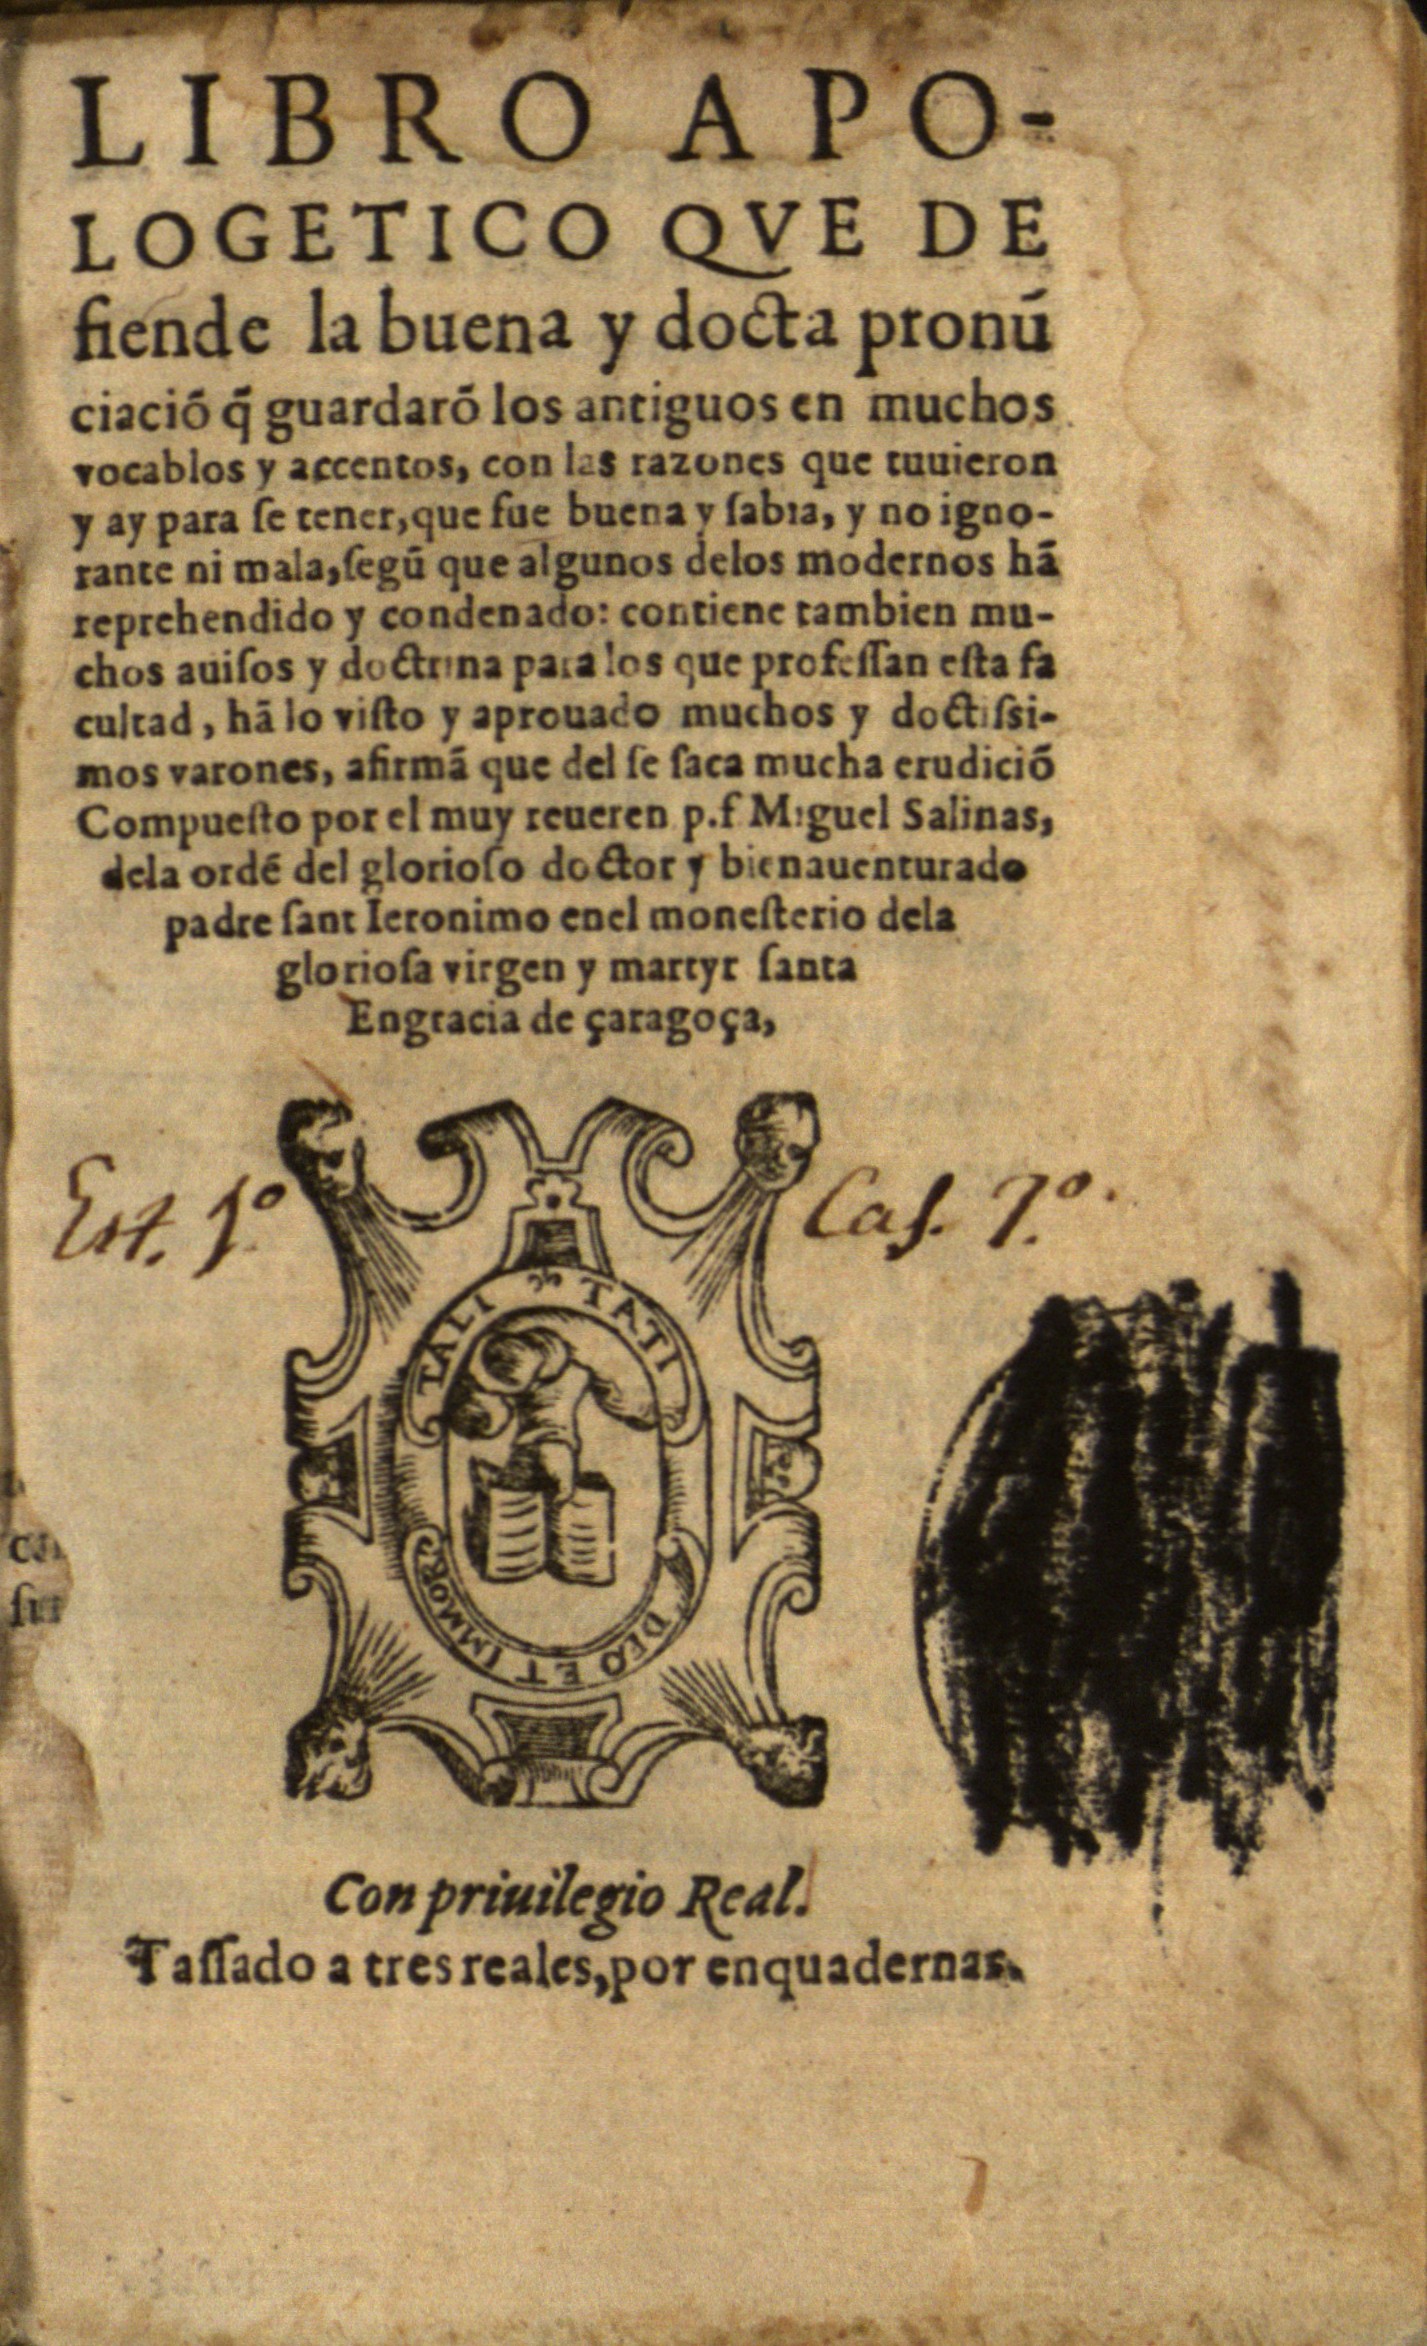 LIBRO APO-
LOGETICO QVE DE
fiende la buena y docta pronũ
ciaciõ q̃ guardarõ los antiguos en muchos
vocablos y accentos, con las razones que tuuieron
y ay para ſe tener, que fue buena y ſabia, y no igno-
rante ni mala, ſegũ que algunos delos modernos hã
reprehendido y condenado: contiene tambien mu-
chos auiſos y doctrina para los que profeſſan eſta fa
cultad, hã lo viſto y aprouado muchos y doctiſsi-
mos varones, afirmã que del ſe ſaca mucha erudiciõ
Compueſto por el muy reueren p.f Miguel Salinas,
dela ordẽ del glorioſo doctor y bienauenturado
padre ſant Ieronimo enel moneſterio dela
glorioſa virgen y martyr ſanta
Engracia de çaragoça,
Est. 1º. Caſ. 7º.
DEO ET IMMOR
TALI TATI
Con priuilegio Real.
Taſſado a tres reales, por enquadernar.